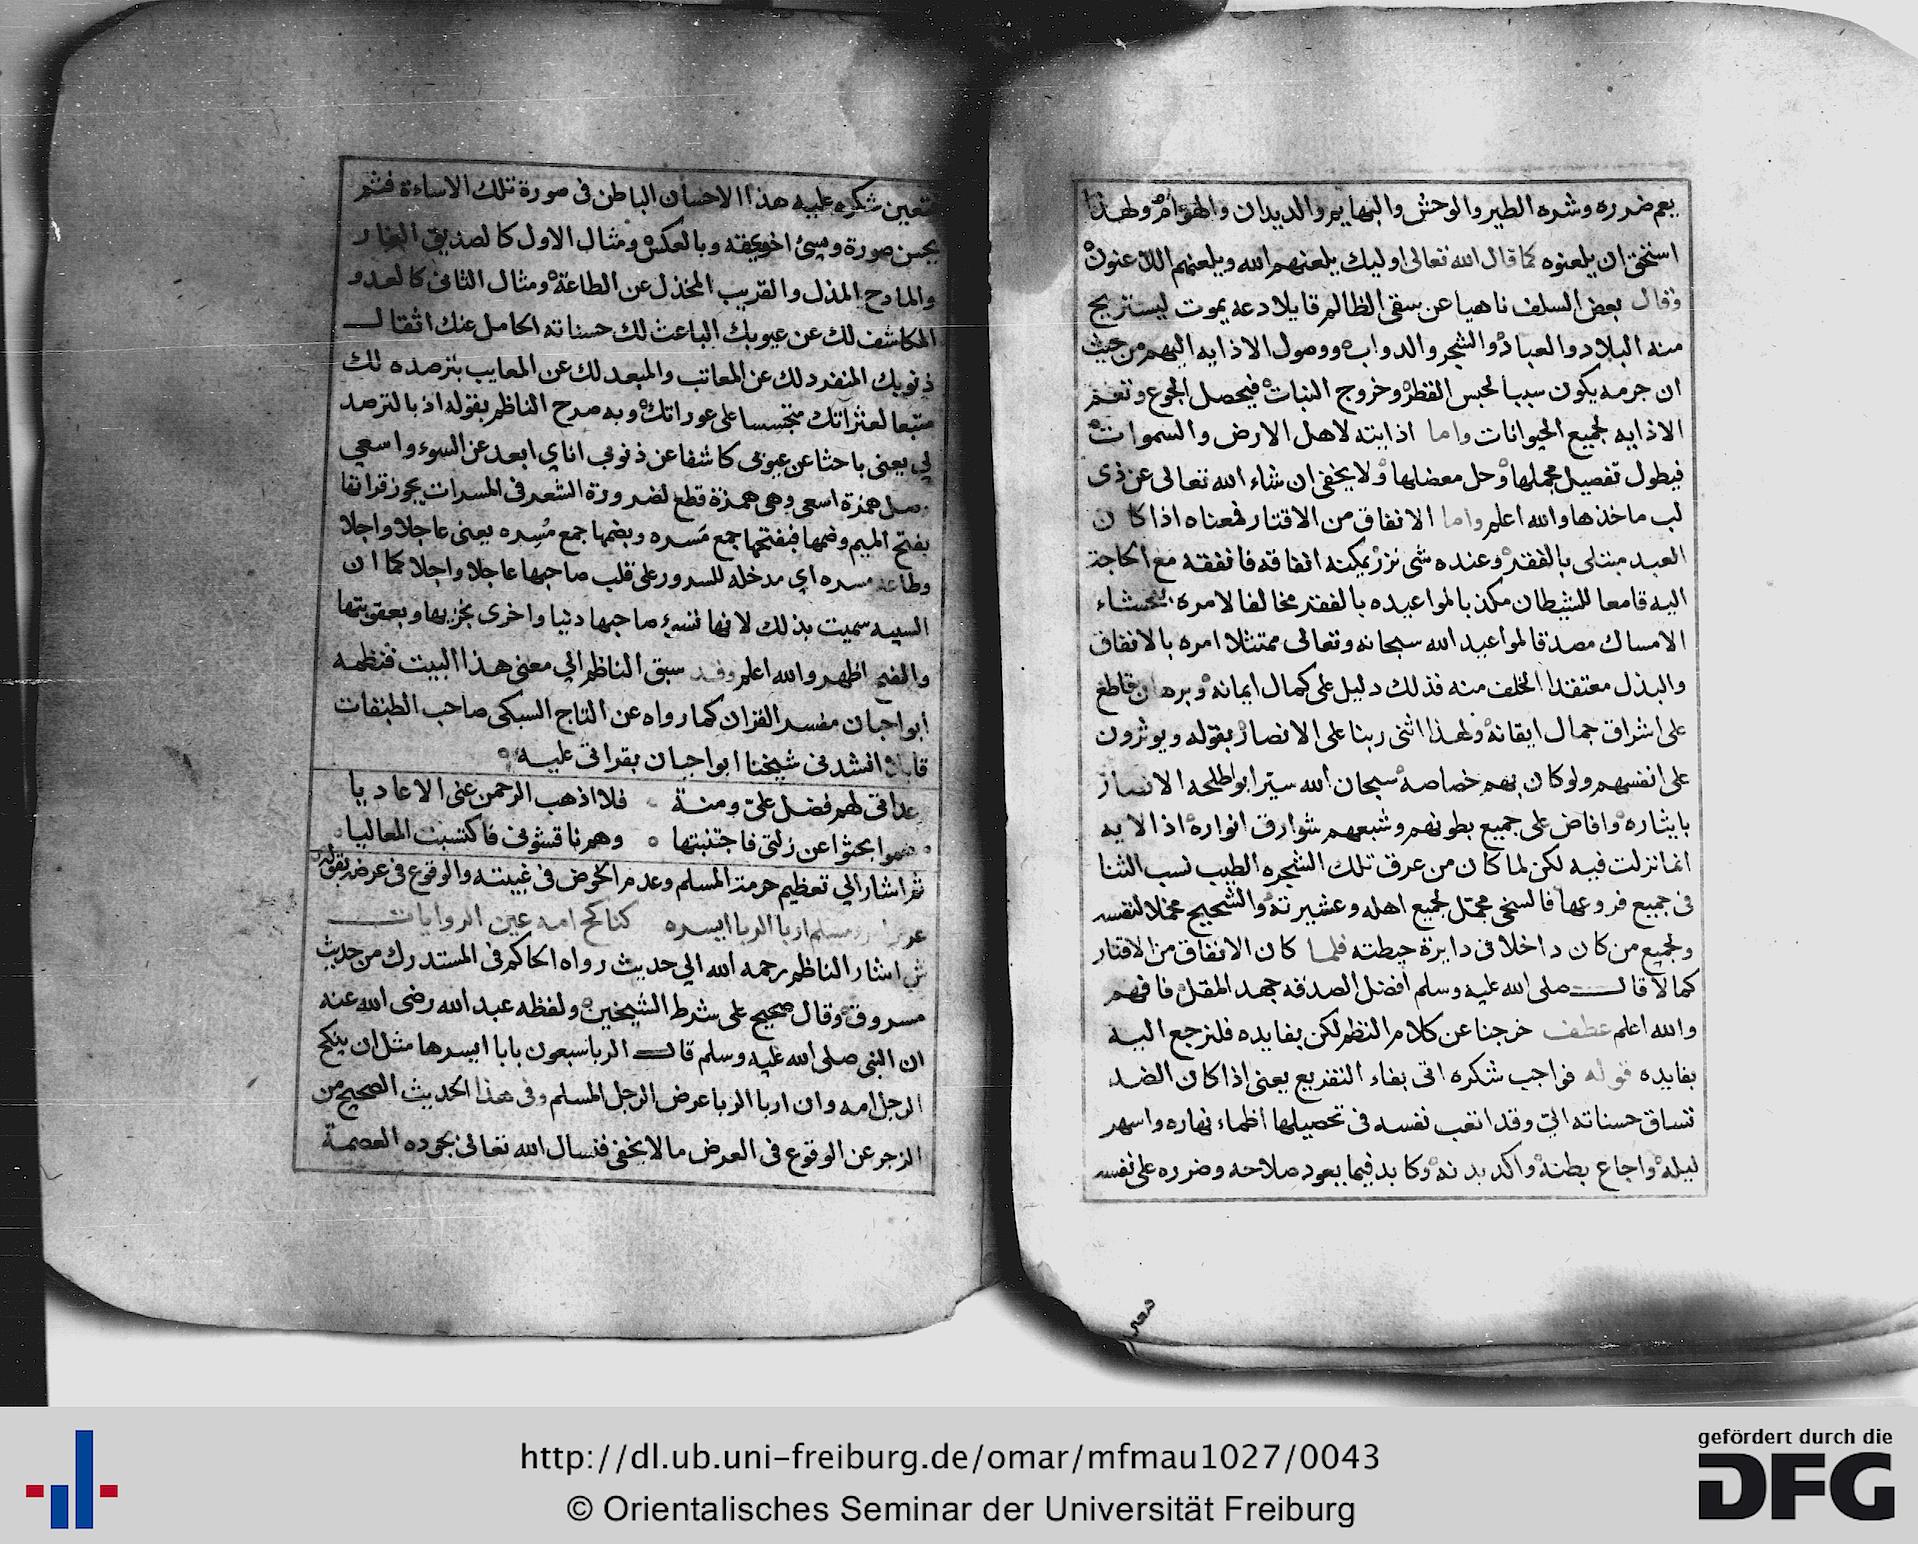 يعم ضرره وشره الطير والوحش والبهايم والديدان والهوام ولهذا
استحق ان يلعنوه كما قال الله تعالى اوليك يلعنهم الله ويلعنهم اللاعنون
وقال بعض السلف ناهيا عن سقي الظالم قايلا دعه يموت ليستريح
منه البلاد والعباد والشجر والدواب ووصول الاذايه اليهم من حيث
ان جرمه يكون سببا لحبس القطر وخروج النبات فيحصل الجوع وتعم
الاذايه لجميع الحيوانات واما اذايته لاهل الارض والسموات
فيطول تفصيل مجملها وحل معضلها ولا يخفى ان شاء الله تعالى عن ذى
لب ماخذها والله اعلم واما الانفاق من الاقتار فمعناه اذا كان
العبد مبتلى بالفقر وعنده شى نزر يمكنه انفاقه فانفقه مع الحاجة
اليه قامعا للشيطان مكذبا لمواعيده بالفقر مخالفا لامره بفحشاء
الامساك مصدقا لمواعيد الله سبحانه وتعالى ممتثلا امره بالانفاق
والبذل معتقدا الخلف منه فذلك دليل على كمال ايمانه وبرهان قاطع
على اشراق جمال ايقانه ولهذا اثنى ربنا على الانصار بقوله ويوثرون
على انفسهم ولو كان بهم خصاصه سبحان الله ستر ابو طلحه الانصار
بايثاره وافاض على جميع بطونهم وشبعهم شوارق انواره اذ الايه
انما نزلت فيه لكن لما كان من عرق تلك الشجره الطيب نسب الثنا
فى جميع فروعها فالسخى مجمل لجميع اهله وعشيرته والشحيح مخلا لنفسه
ولجميع من كان داخلا فى دايرة حيطته فلما كان الانفاق من الاقتار
كمالا قال صلى الله عليه وسلم افضل الصدقه جهد المقل فافهم
والله اعلم عطف خرجنا عن كلام النظم لكن بفايده فلنرجع اليه
بفايده قوله فواجب شكره اتى بفاء التفريع يعنى اذا كان الضد
تساق حسناته الي وقد اتعب نفسه فى تحصيلها اظماء نهاره واسهر
ليله واجاع بطنه واكد بدنه وكابد فيما يعود صلاحه وضرره على نفسه
فتعين
فتعين شكره عليه هذا الاحسان الباطن فى صورة تلك الاساءة فثم
يحسن صورة وسيئ اخر حقيقه وبالعكس ومثال الاول كالصديق
والمادح المذل والقريب المخذل عن الطاعة ومثال الثانى كالعدو
المكاشف لك عن عيوبك الباعث لك حسناته الحامل عنك اثقال
ذنوبك المنفرد لك عن المعاتب والمبعد لك عن المعايب بترصده لك
متبعا لعثراتك متجسسا على عوراتك وبه صرح الناظم بقوله اذ بالترصد
لي يعنى باحثا عن عيوبى كاشفا عن ذنوبى اناي ابعد عن السوء واسعى
وصل همزة اسعى وهى همزة قطع لضرورة الشعر فى المسرات يجوز قراتها
بفتح الميم وضمها فبفتحها جمع مَسره وبضمها جمع مُسِره يعنى عاجلا واجلا
وطاعة مسره اي مدخله للسرور على قلب صاحبها عاجلا واجلا كما ان
السييه سميت بذلك لانها تسيء صاحبها دنيا واخرى بخزيها وبعقوبتها
والضم اظهر والله اعلم وقد سبق الناظم الي معنى هذا البيت فنظمه
ابو احيان مفسر القران كما رواه عن التاج السبكى صاحب الطبقات
قايلا انشدنى شيخنا ابو احيان بقراتى عليه
عداتى لهم فضل علىّ ومنة فلا اذهب الرحمن عنى الاعاديا
همو بحثوا عن زلتى فاجتنبتها وهم نافسونى فاكتسبت المعاليا
ثم اشار الي تعظيم حرمة المسلم وعدم الخوض فى غيبته والوقوع فى عرضه بقوله
مسلم اربا الربا ايسره كناكح امه عين الروايات
ش اشار الناظم رحمه الله الي حديث رواه الحاكم فى المستدرك من حديث
مسروق وقال صحيح على شرط الشيخين ولفظه عبد الله رضى الله عنه
ان النبى صلى الله عليه وسلم قال الربا سبعون بابا ايسرها مثل ان ينكح
الرجل امه وان اربا الربا عرض الرجل المسلم وفى هذا الحديث الصحيح من
الزجر عن الوقوع فى العرض ما لا يخفى فنسال الله تعالى بجوده العصمة
http://dl.ub.uni-freiburg.de/omar/mfmau1027/0043
© Orientalisches Seminar der Universität Freiburg
gefördert durch die
DFG